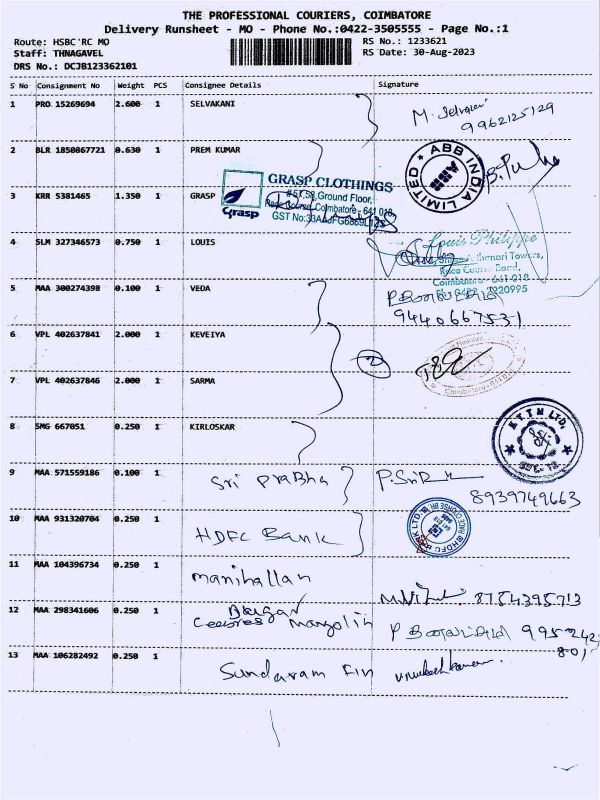 THE PROFESSIONAL COURIERS, COIMBATORE
Delivery Runsheet - MO - Phone No.:0422-3505555 - Page No.:1
Route: HSBC'RC MO
RS No.: 1233621
Staff: THNAGAVEL
RS Date: 30-Aug-2023
DRS No.: DCJB123362101
S No Consignment No Weight PCS Consignee Details Signature
1 PRO 15269694 2.600 1 SELVAKANI
9962125129
2 BLR 1850867721 0.630 1 PREM KUMAR
ABB INDIA LIMITED
ABB
3 KRR 5381465 1.350 1 GRASP
Grasp
GRASP CLOTHINGS
#57,58,Ground Floor,
Race Course,Coimbatore - 641 018.
4 SLM 327346573 0.750 1 LOUIS
Louis Philippe
Towers,
Race Course Road,
Coimbatore - 641 018
5 MAA 300274398 0.100 1 VEDA
9440667531
6 VPL 402637841 2.000 1 KEVEIYA
2
7 VPL 402637846 2.000 1 SARMA
8 SMG 667051 0.250 1 KIRLOSKAR
9 MAA 571559186 0.100 1 Sri Prabha
8939749663
10 MAA 931320704 0.250 1 HDFC Bank
11 MAA 104396734 0.250 1 manihallan
8754395713
12 MAA 298341606 0.250 1
13 MAA 106282492 0.250 1 Sundaram Fin